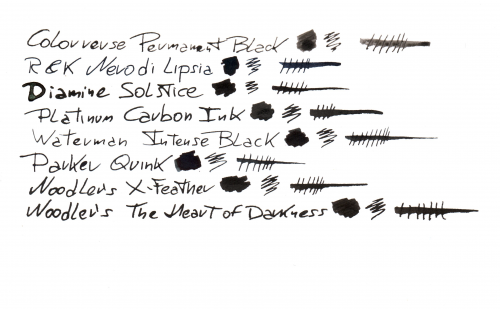 Colorverse Permanent Black
R&K Nero di Lipsia
Diamine Solstice
Platinum Carbon Ink
Waterman Intense Black
Parker Quink
Noodler's X-Feather
Noodler's The Heart of Darkness